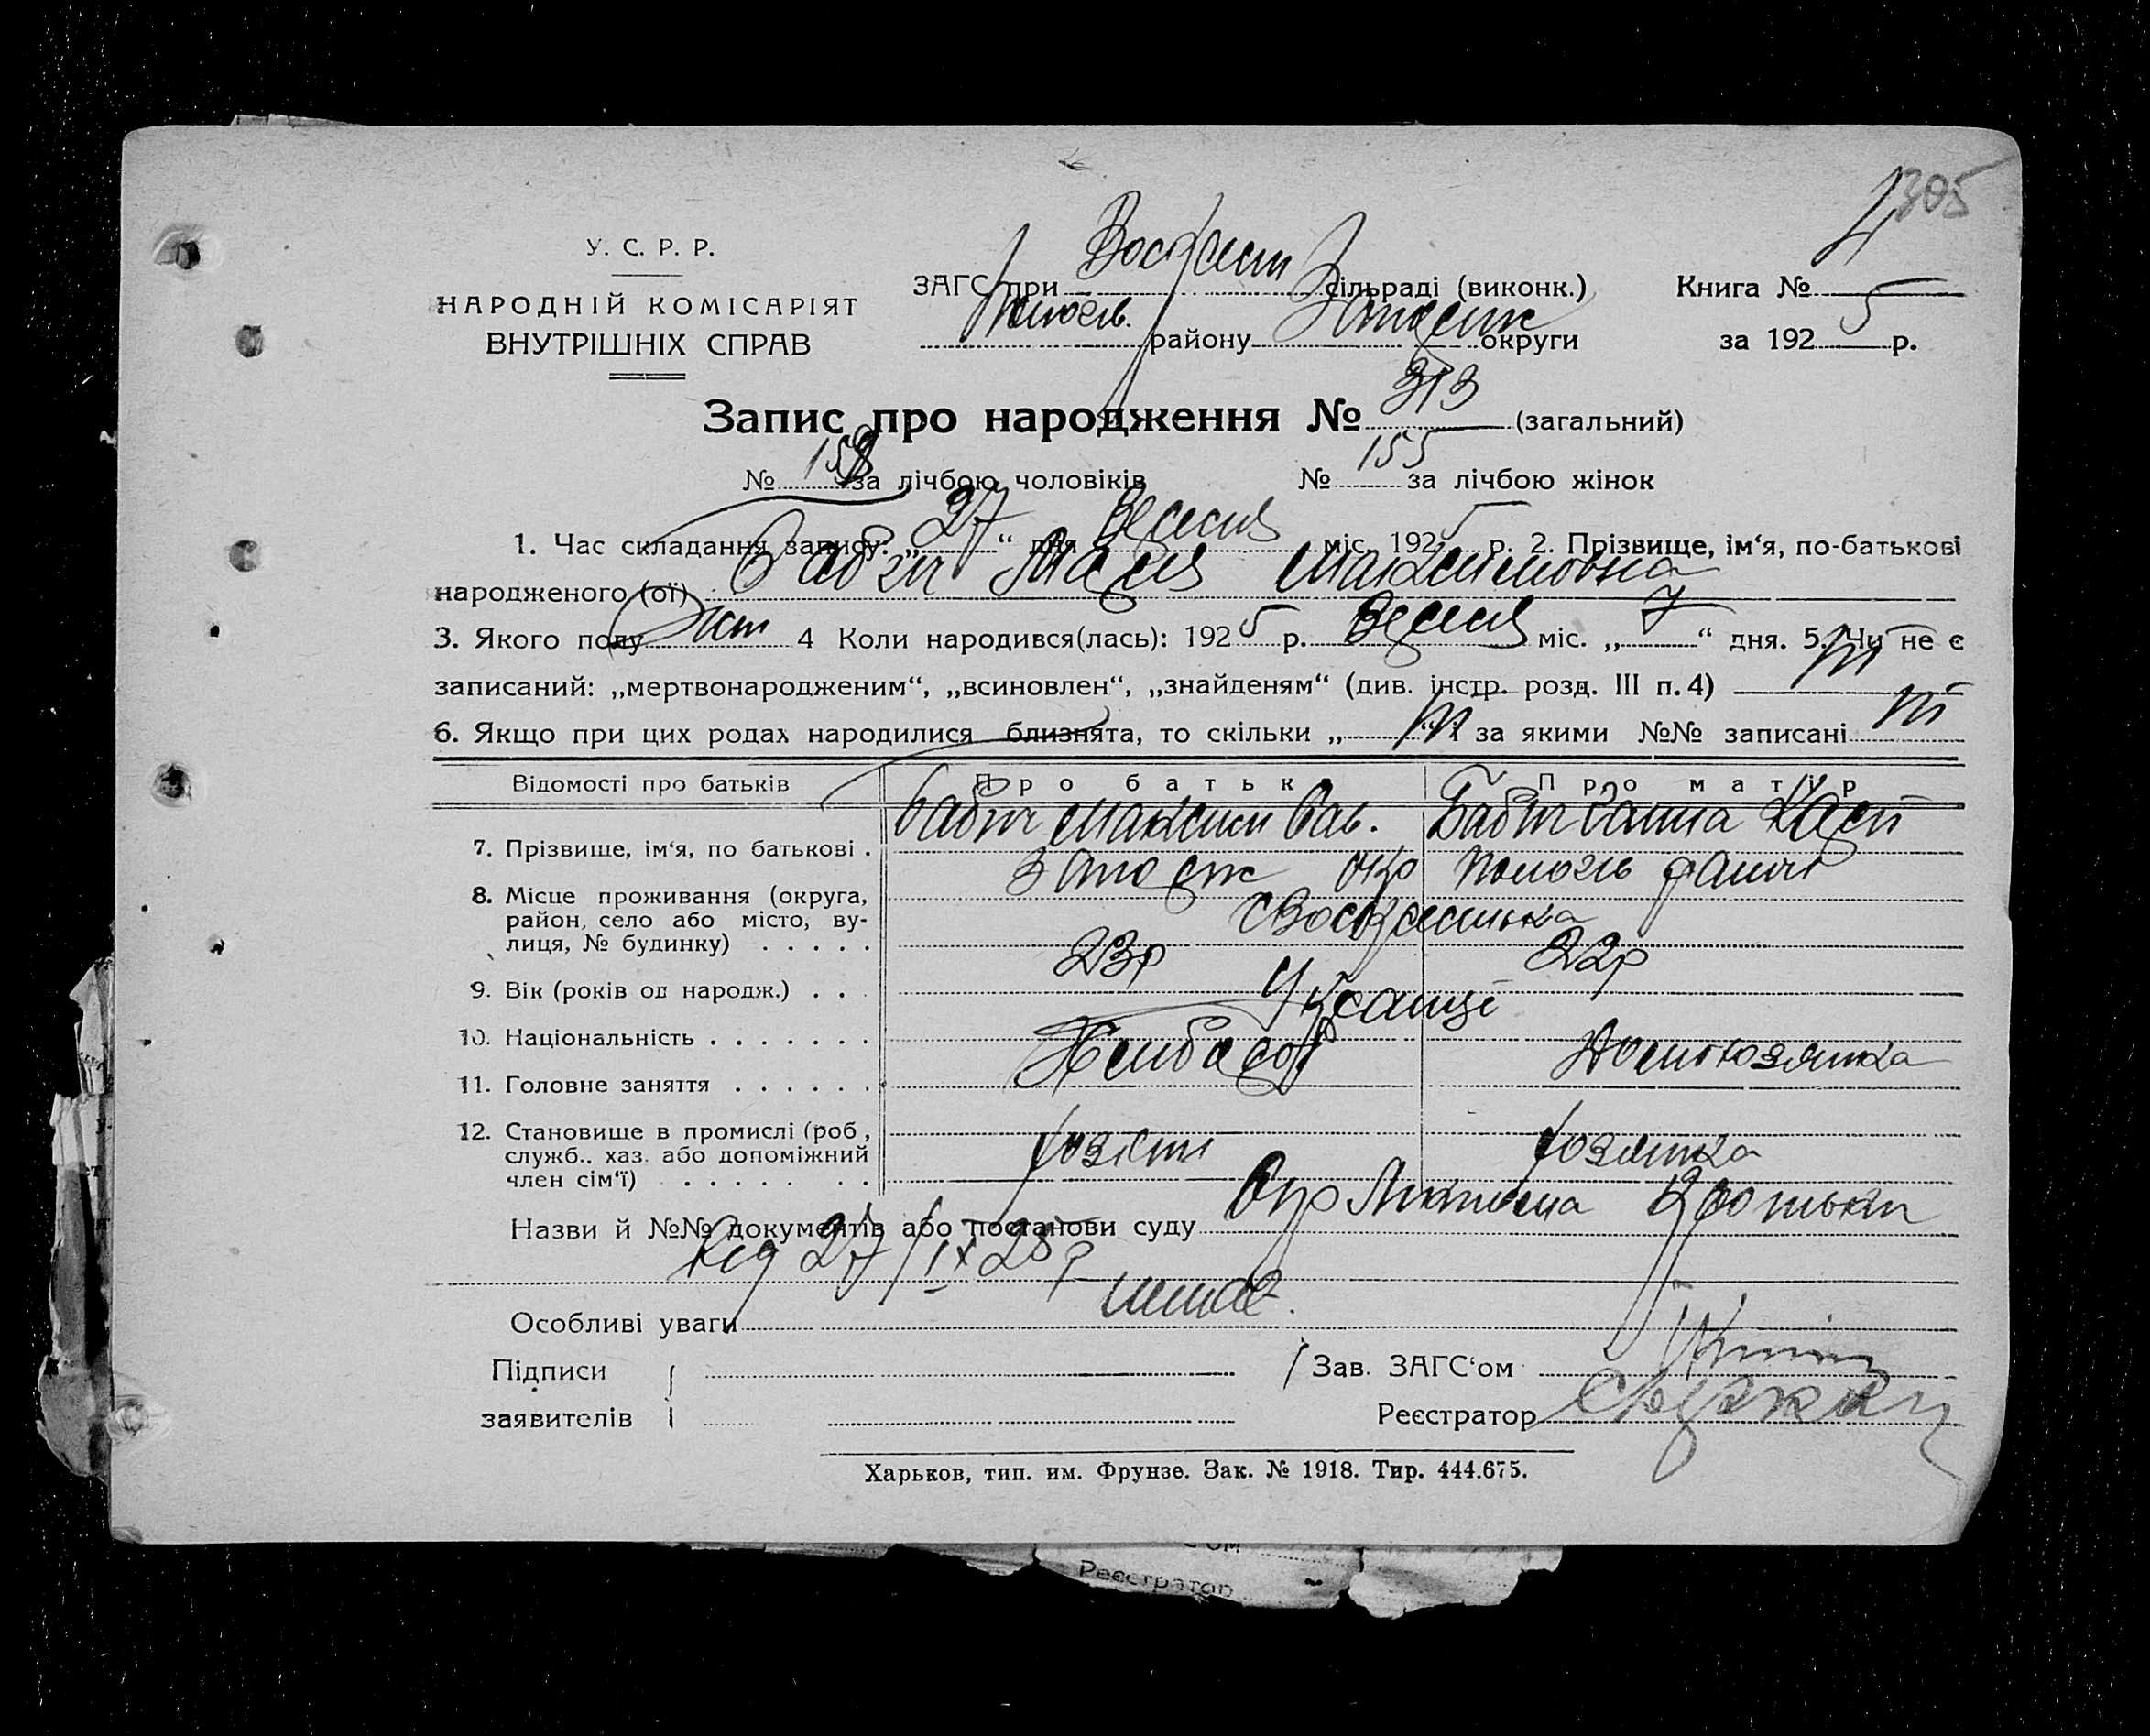 305
У. С. Р. Р.
НАРОДНІЙ КОМІСАРІЯТ
ВНУТРІШНІХ СПРАВ
ЗАГС при Воскресен сільраді (виконк.)
Пологів. району Запоріж округи
Книга №
за 1925 р.
Запис про народження № 313 (загальний)
№ 158 за лічбою чоловіків № 155 за лічбою жінок
1. Час складання запису: „27“ дня Вересня міс. 1925 р. 2. Прізвище, ім‘я, по-батькові
народженого (ої) Бабіч Марія Максимовна
3. Якого полу жін 4 Коли народився(лась): 1925 р. Вересня міс. „7“ дня. 5. Чи не є
записаний: „мертвонародженим“, „всиновлен“, „знайденям“ (див. інстр. розд. III п. 4) ні
6. Якщо при цих родах народилися близнята, то скільки „ні“ за якими №№ записані ні
Відомості про батьків Про батька Про матір
7. Прізвище, ім‘я, по батькові . Бабіч Максим Сав. Бабіч Ганна
8. Місце проживання (округа,
район, село або місто, ву-
лиця, № будинку) . . . . . Запоріж окр Пологів району
с Воскресенька
9. Вік (років од народж.) . . . 23р 22р
10. Національність . . . . . . . Українці
11. Головне заняття . . . . . . Хлібороб Домохозяйка
12. Становище в промислі (роб,
служб., хаз. або допоміжний
член сім‘ї) . . . . . . . хозяїн хозяйка
Назви й №№ документів або постанови суду
Від 27/IX 25р
Особливі уваги немає.
Підписи
заявителів
Зав. ЗАГС‘ом
Реєстратор
Харьков, тип. им. Фрунзе. Зак. № 1918. Тир. 444.675.
Реєстратор